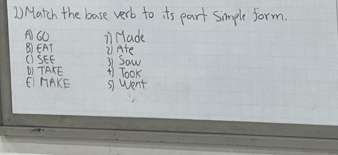 1) Match the base verb to its past simple form.
A) GO 1) Made
B) EAT 2) Ate
C) SEE 3) Saw
D) TAKE 4) Took
E) MAKE 5) Went